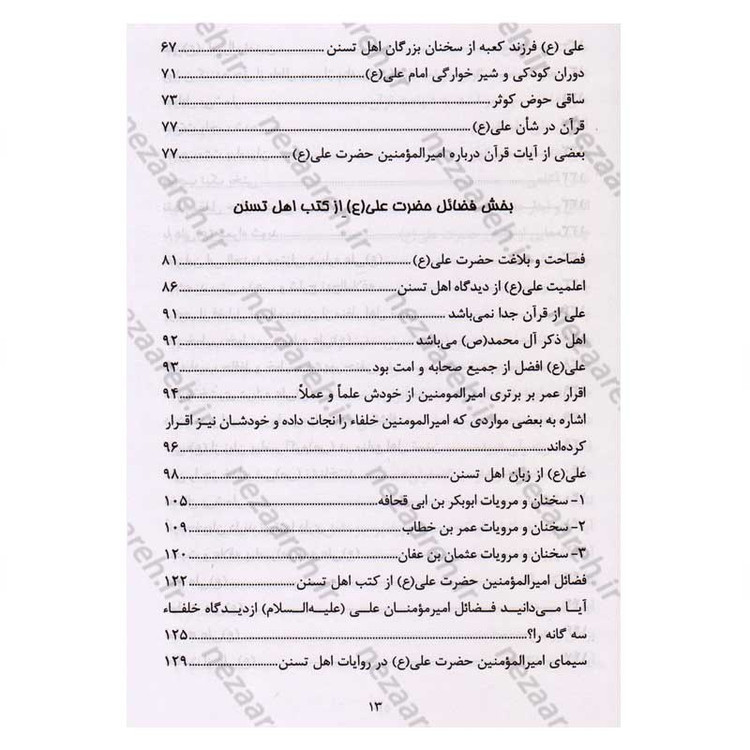 علی (ع) فرزند کعبه از سخنان بزرگان اهل تسنن ................................ ۶۷
دوران کودکی و شیر خوارگی امام علی(ع) ................................ ۷۱
ساقی حوض کوثر ................................ ۷۳
قرآن در شأن علی(ع) ................................ ۷۷
بعضی از آیات قرآن درباره امیرالمؤمنین حضرت علی(ع) ................................ ۷۷
بخش فضائل حضرت علی(ع) از کتب اهل تسنن
فصاحت و بلاغت حضرت علی(ع) ................................ ۸۱
اعلمیت علی(ع) از دیدگاه اهل تسنن ................................ ۸۶
علی از قرآن جدا نمی‌باشد ................................ ۹۱
اهل ذکر آل محمد(ص) می‌باشد ................................ ۹۲
علی(ع) افضل از جمیع صحابه و امت بود ................................ ۹۳
اقرار عمر بر برتری امیرالمومنین از خودش علماً و عملاً ................................ ۹۴
اشاره به بعضی مواردی که امیرالمومنین خلفاء را نجات داده و خودشان نیز اقرار
کرده‌اند ................................ ۹۶
علی(ع) از زبان اهل تسنن ................................ ۹۸
۱- سخنان و مرویات ابوبکر بن ابی قحافه ................................ ۱۰۵
۲- سخنان و مرویات عمر بن خطاب ................................ ۱۰۹
۳- سخنان و مرویات عثمان بن عفان ................................ ۱۲۰
فضائل امیرالمؤمنین حضرت علی(ع) از کتب اهل تسنن ................................ ۱۲۲
آیا می‌دانید فضائل امیرمؤمنان علی (علیه‌السلام) ازدیدگاه خلفاء
سه گانه را؟ ................................ ۱۲۵
سیمای امیرالمؤمنین حضرت علی(ع) در روایات اهل تسنن ................................ ۱۲۹
۱۳
nezaareh.ir